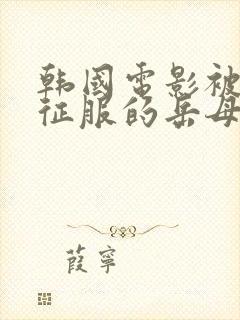 韩國電影被
征服的岳母
葭寧